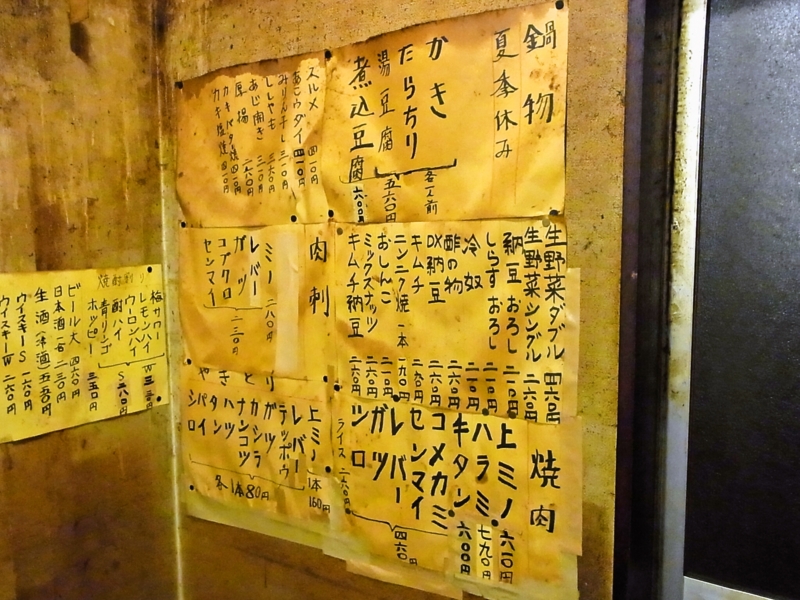 鍋物
夏季休み
かき
たらちり
湯豆腐
各一人前
五六〇円
煮込豆腐 六〇〇円
スルメ 四一〇円
あこウダイ 四一〇円
みりん干し 三一〇円
ししゃも 三六〇円
あじ開き 三一〇円
厚揚 二六〇円
カキバター焼 四一〇円
カキ塩焼 四一〇円
生野菜ダブル 四六〇円
生野菜シングル 二六〇円
納豆おろし 二一〇円
しらすおろし 二一〇円
冷奴 二一〇円
酢の物 二六〇円
DX納豆 二六〇円
キムチ 二六〇円
ニンニク焼 一本 一九〇円
おしんこ 二一〇円
ミックスナッツ 二六〇円
キムチ納豆 二六〇円
肉刺
ミノ 二八〇円
レバー
ガツ
コブクロ
センマイ
二三〇円
焼肉
上ミノ 六一〇円
ハラミ 七九〇円
牛タン 六〇〇円
コメカミ
センマイ
レバー
ガツ
シロ
四六〇円
ライス 二六〇円
やきとり
上ミノ 1本 160円
レバー
テッポウ
ガツ
カシラ
ナンコツ
ハツ
タン
パイ
シロ
各1本80円
焼酎割り
梅サワー
レモンハイ
ウーロンハイ
酎ハイ
青リンゴ
ホッピー 三五〇円
ビール大 四六〇円
日本酒一合 二三〇円
生酒(冷酒) 五五〇円
ウイスキーS 一六〇円
ウイスキーW 二六〇円